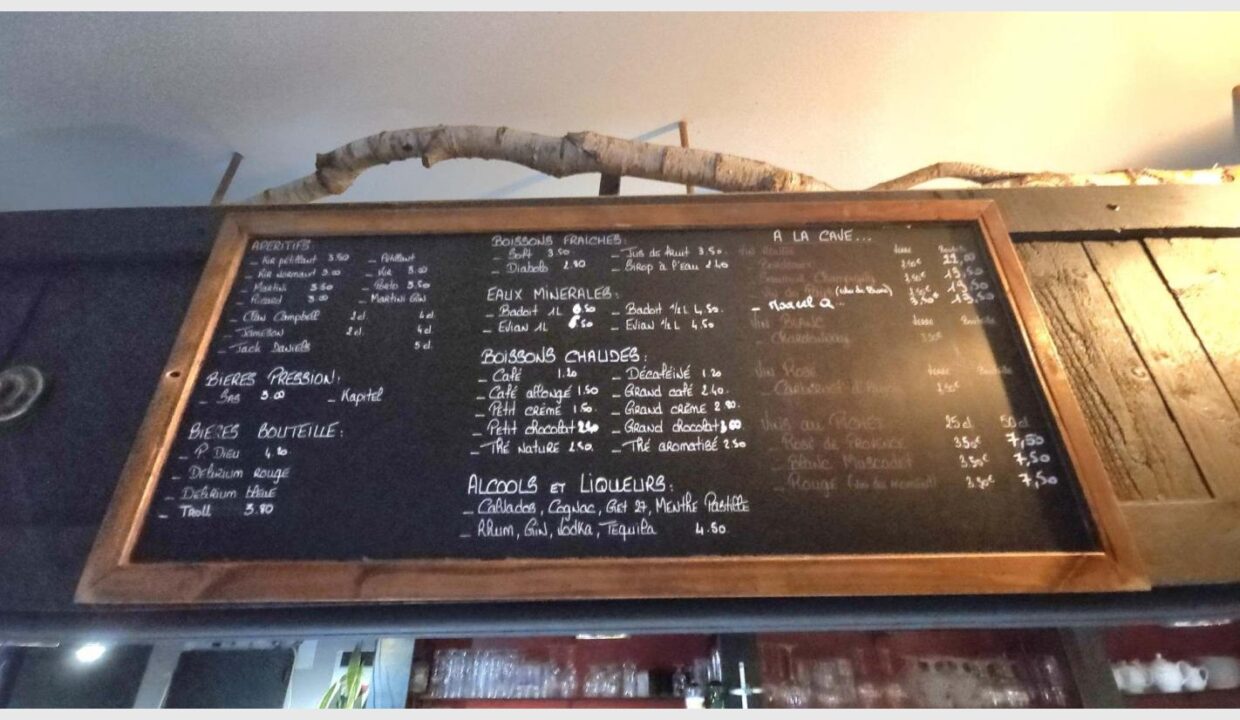 APERITIFS
_ Kir pétillant 3.50
_ Kir Normand 3.00
_ Martini 3.50
_ Ricard 3.00
_ Clan Campbell 2cl 4cl
_ Jameson 2cl 4cl
_ Jack Daniels 5cl
_ Pétillant
_ Kir 3.00
_ Porto 3.50
_ Martini Gin
BIERES PRESSION:
_ Bas 3.00 _ Kapitel
BIERES BOUTEILLE:
_ P. Dieu 4.20
_ Delirium Rouge
_ Delirium
_ Troll 3.80
BOISSONS FRAICHES:
_ Soft 3.50 _ Jus de fruit 3.50
_ Diabolo 2.80 _ Sirop à l'eau 2.40
EAUX MINERALES:
_ Badoit 1L _ Badoit 1/2 L 4,50
_ Evian 1L _ Evian 1/2 L 4,50
BOISSONS CHAUDES:
_ Café 1.20 _ Décaféiné 1.20
_ Café allongé 1.50 _ Grand café 2.40
_ Petit crème _ Grand crème
_ Petit chocolat _ Grand chocolat
_ Thé nature 2.50 _ Thé aromatisé 2.50
ALCOOLS ET LIQUEURS:
_ Calvados, Cognac, Get 27, Menthe Pastille
_ Rhum, Gin, Vodka, Tequila 4.50
A LA CAVE...
Vin Rouge Verre Bouteille
22,00
19,50
(Vin de Pays) 19,50
_ Marcel Q.. 3,50€ 19,50
Vin Blanc Verre Bouteille
_ Chardonnay 3.50€
Vin Rosé
_ Cabernet d'Anjou
Vins au Pichet 25 cl 50 cl
_ Rosé de Provence 3.50€ 7,50
_ Blanc Muscadet 3.50€ 7,50
_ Rouge (vin du moment) 7,50